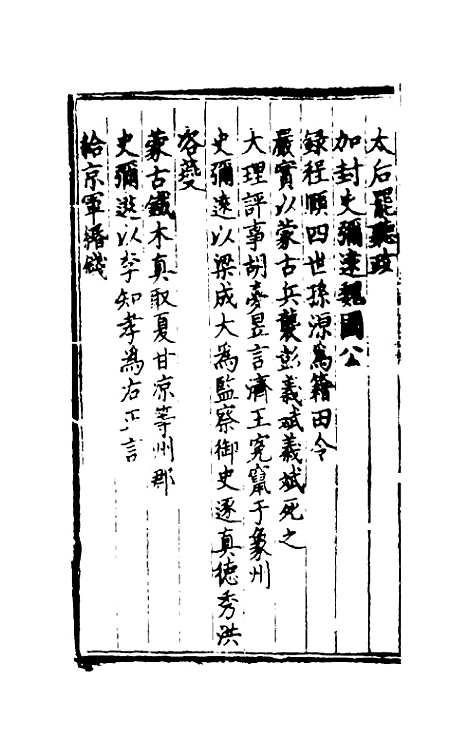 太后罷聽政
加封史彌遠魏國公
録程頤四世孫源爲籍田令
嚴實以蒙古兵襲彭義斌義斌死之
大理評事胡夢昱言濟王寃竄于象州
史彌遠以梁成大爲監察御史逐真德秀洪
咨夔
蒙古鐵木真取夏甘凉等州郡
史彌遠以李知孝爲右正言
給京軍緡錢